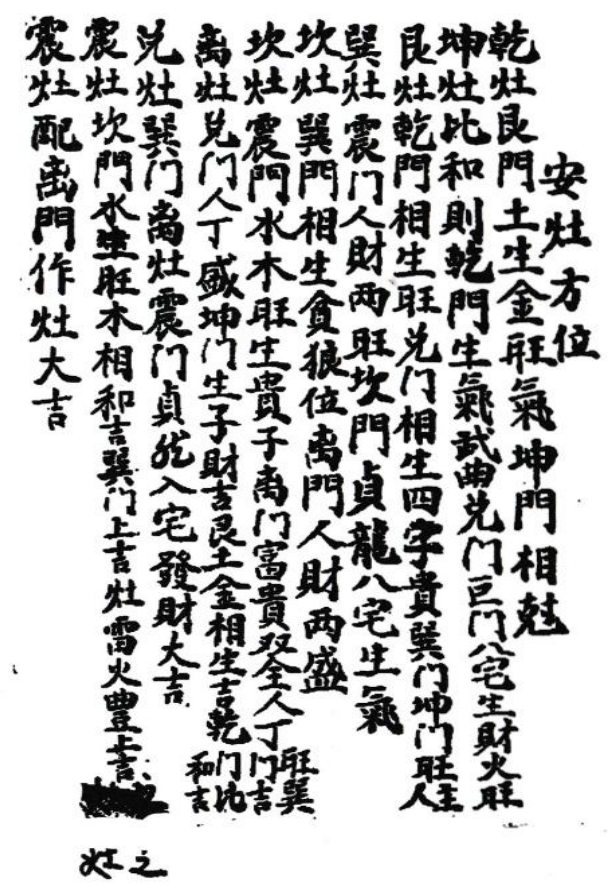 安灶方位
乾灶艮門土生金旺氣坤門相尅
坤灶比和則乾門生氣武曲兑门巨门八宅生財火旺
艮灶乾門相生旺兑门相生四字貴巽门坤门旺主人
巽灶震门人財两旺坎門貞龍八宅生氣
坎灶巽門相生貪狼位离門人財两盛
坎灶震門水木旺生貴子离门富貴双全人丁旺巽门吉
离灶兑门人丁盛坤门生子財吉艮土金相生吉乾门比和吉
兑灶巽门离灶震门貞然入宅發財大吉
震灶坎門水生旺木相和吉巽门上吉灶雷火豊上吉
震灶配离門作灶大吉
之灶